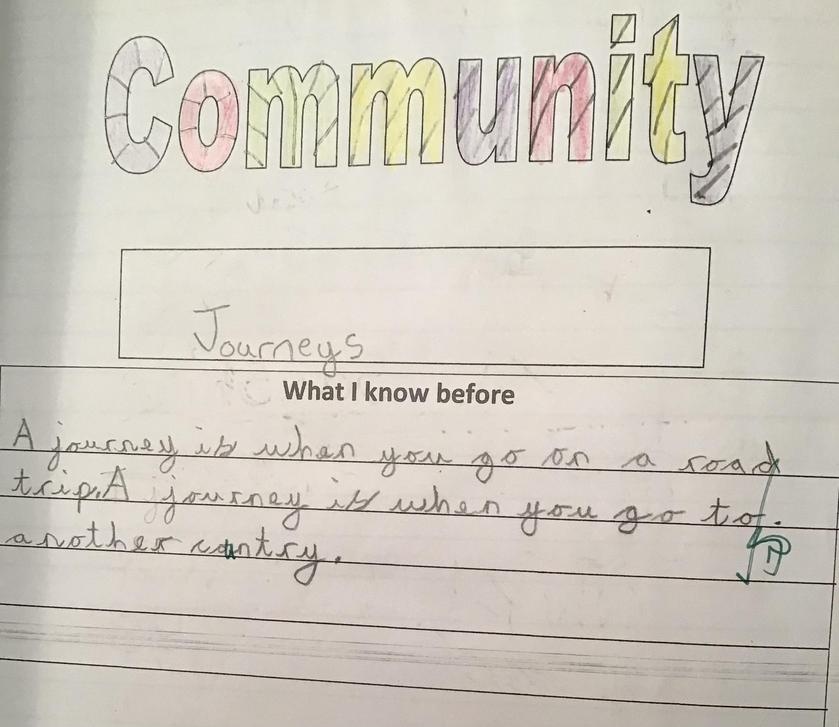 Community
Journeys
What I know before
A journey is when you go on a road
trip. A journey is when you go to.
another cuntry.